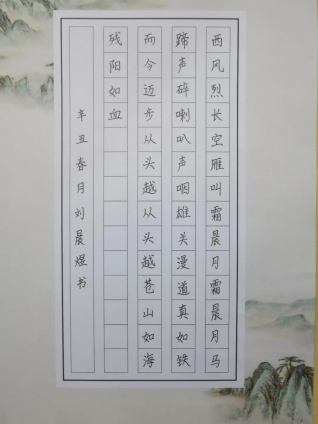 西风烈长空雁叫霜晨月霜晨月马
蹄声碎喇叭声咽雄关漫道真如铁
而今迈步从头越从头越苍山如海
残阳如血
辛丑春月刘晨煜书